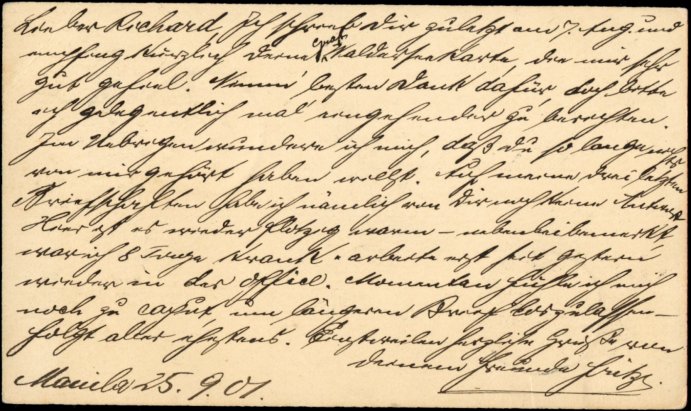 Lieber Richard, Ich schrieb Dir zuletzt am 7. Aug. und
empfing kürzlich Deine Waldersee karte, die mir sehr
gut gefiel. Nimm besten Dank dafür, doch bitte
ich gelegentlich mal eingehender zu berichten.
Im Uebrigen wundere ich mich, daß du so lange nichts
von mir gehört haben willst. Auf meine drei letzten
Briefschaften habe ich nämlich von Dir noch keine Antwort
Hier ist es wieder klotzig warm – nebenbei bemerkt
war ich 8 Tage krank - arbeite erst seit gestern
wieder in der Office. Momentan fühle ich mich
noch zu caput, um längeren Brief loszulassen –
folgt aller ehestens. Einstweilen herzliche Grüße von
Deinem Freunde Fritz.
Manila 25. 9. 01.